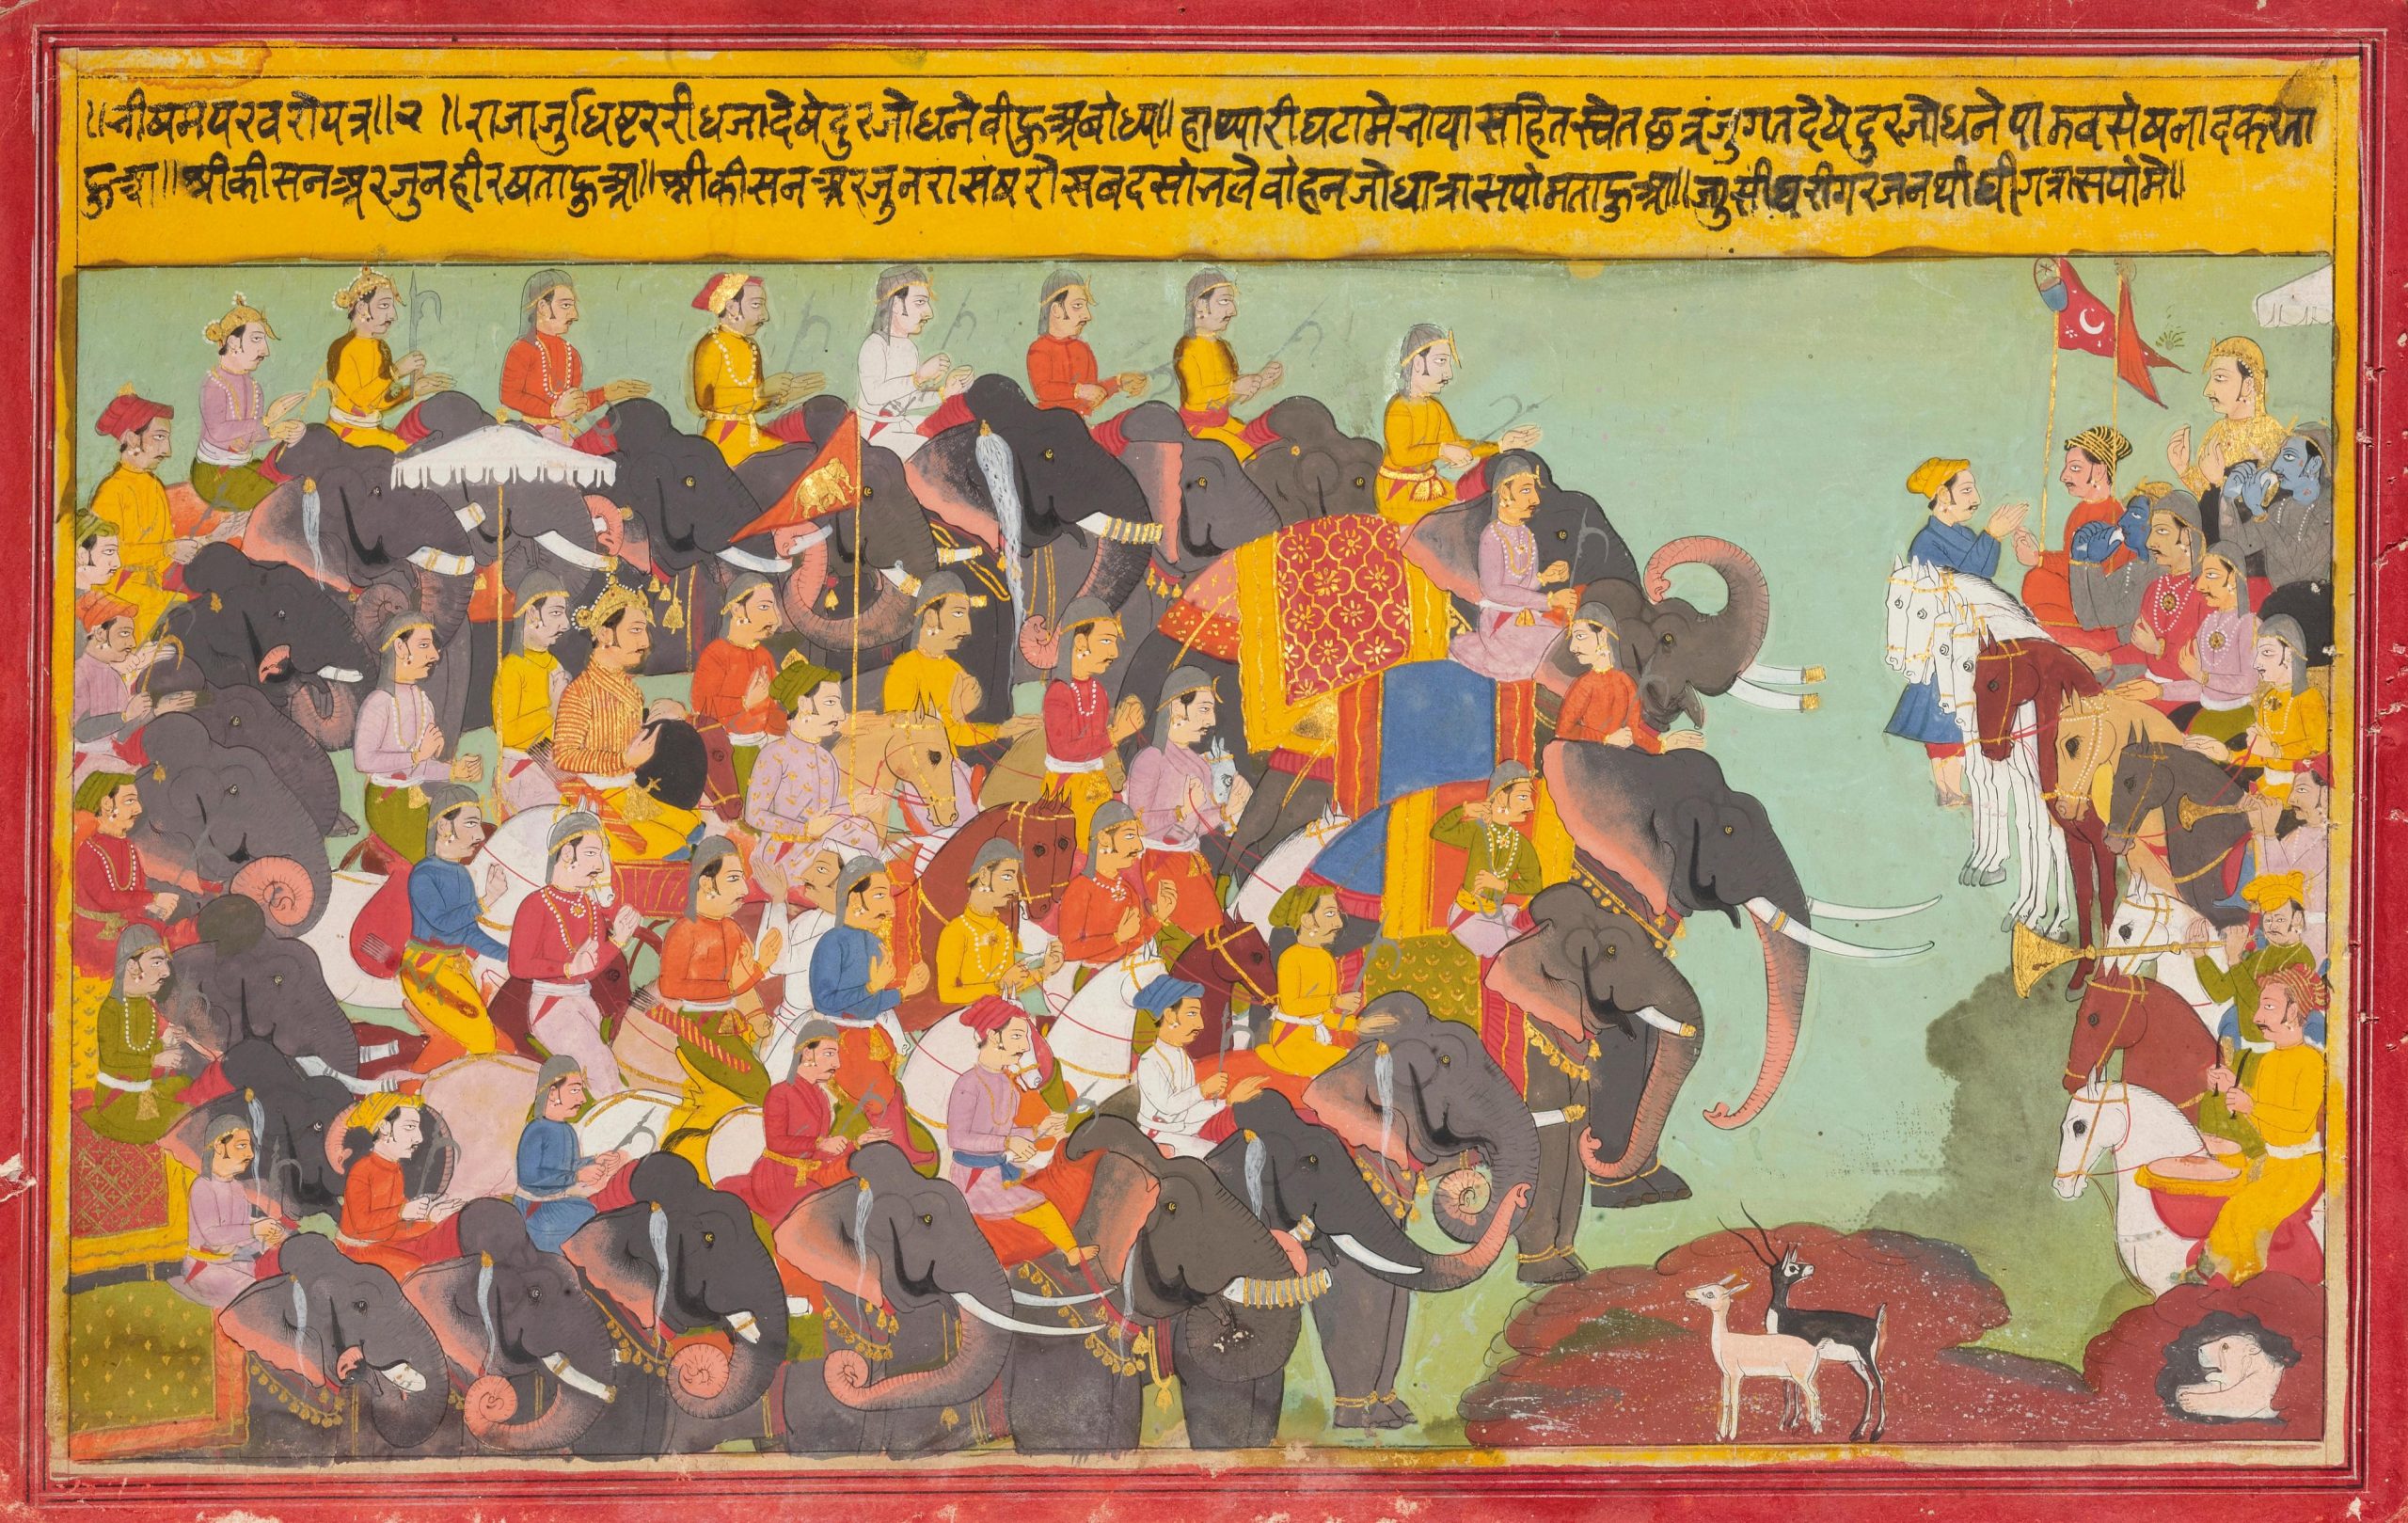 ॥भीषमपरवरोपत्र॥२ ॥राजाजुधिष्टररीधजादेषेदुरजोधनेवीहुअबोध्य॥हाथ्यारीघटामेनायासहितस्वेतछत्रंजुगतदेषेदुरजोधनेपाडवसंषनादकरता
हुआ॥श्रीकीसनअरजुनहीरषताहुआ॥श्रीकीसनअरजुनरासंषरोसबदसांभलेवांहनजोधात्रासपांमताहुआ॥ज्युसीघरीगरजनथीघीगत्रासपांमे॥